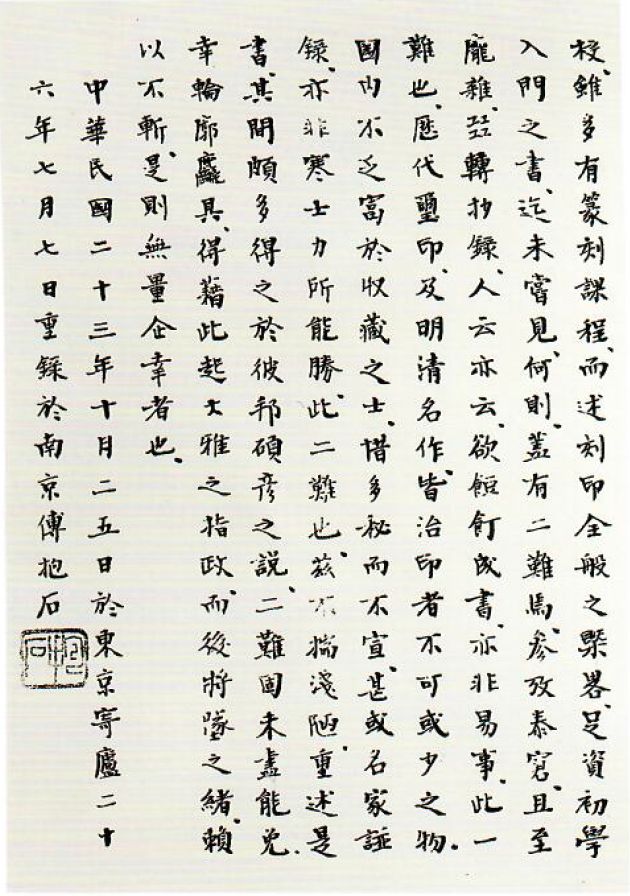 校、雖多有篆刻課程、而述刻印全般之槩畧、足資初學
入門之書、迄未嘗見、何則、蓋有二難焉、參攷泰窘、且至
龐雜、㠭轉抄錄、人云亦云、欲餖飣成書、亦非易事、此一
難也、歷代璽印、及明清名作、皆治印者不可或少之物。
國內不乏富於收藏之士、惜多秘而不宣、甚或名家誣
錄、亦非寒士力所能勝、此二難也、茲不揣淺陋、重述是
書、其間頗多得之於彼邦碩彥之說、二難固未盡能免、
幸輪廓麤具、得藉此起大雅之指政、而後將墜之緒、賴
以不斬、是則無量企幸者也、
中華民國二十三年十月二五日於東京寄廬二十
六年七月七日重錄於南京傅抱石